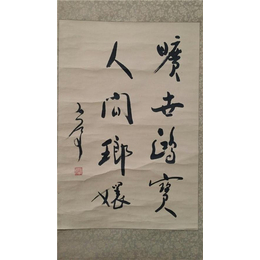 曠世鴻寶
人間瑯嬛